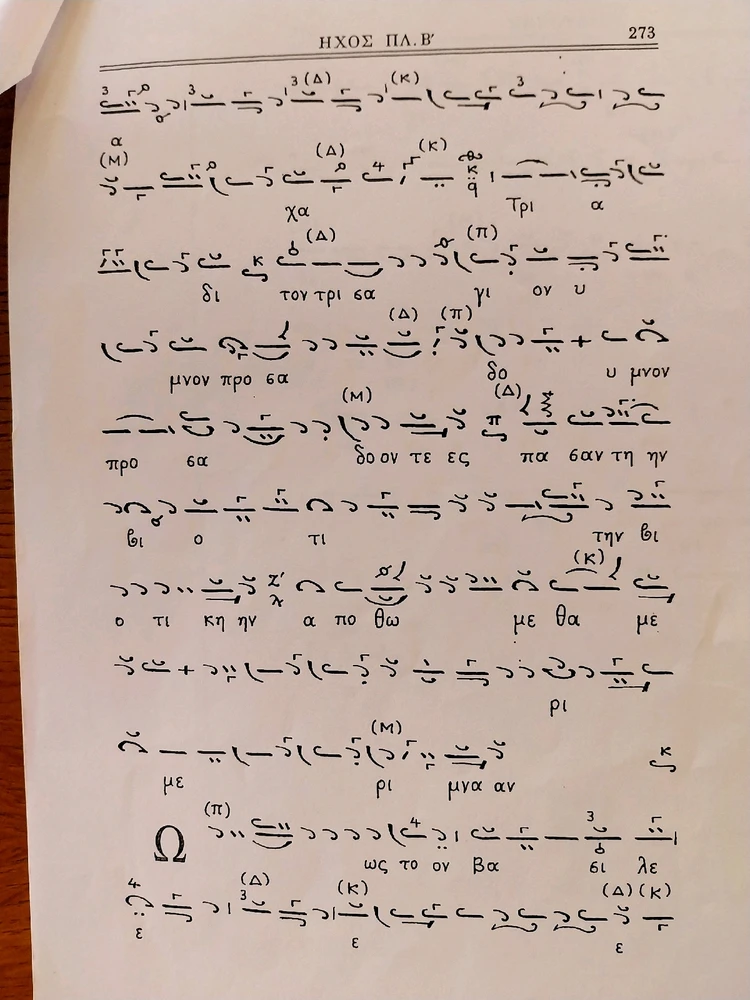 ΗΧΟΣ ΠΛ. Β′ 273
3 3 3 (Δ) (Κ) 3
α
(Μ) (Δ) 4 (Κ) κ q
χα Τρι α
κ (Δ) (Π)
δι τον τρι σα γι ον υ
(Δ) (π)
μνον προ σα δο υ μνον
(Μ) π (Δ)
προ σα δο ον τε ες πα σαν τη ην
βι ο τι την βι
Ζ′ λ (Κ)
ο τι κη ην α πο θω με θα με
ρι
(Μ) κ
με ρι μνα αν
(Π) 4 3
Ω ως το ον βα σι λε
4 (Δ) 3 (Κ) (Δ) (Κ)
ε ε ε